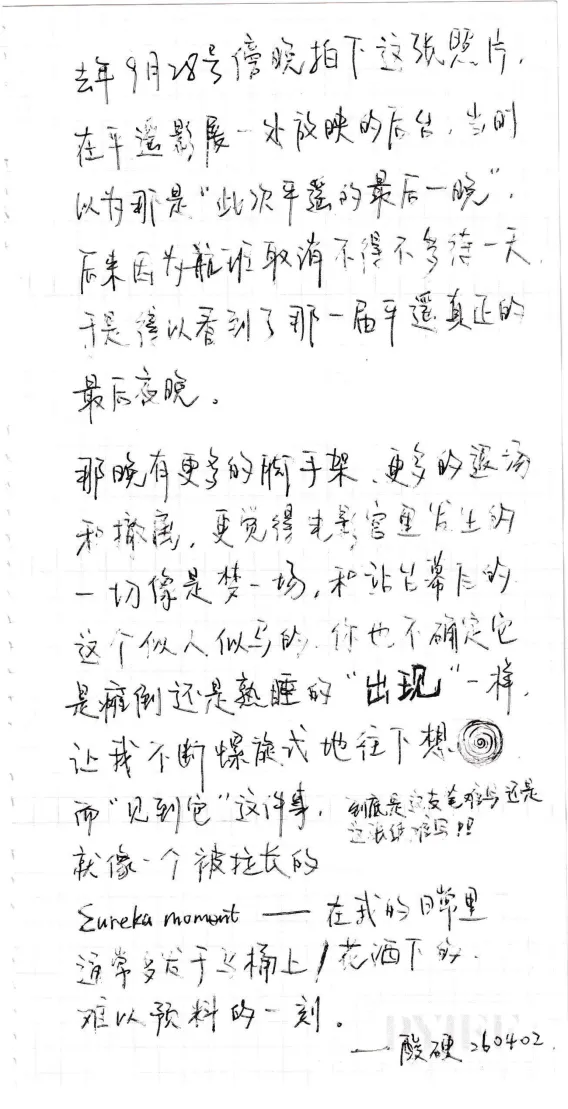 去年9月28号傍晚拍下这张照片，
在平遥影展一处放映的后台，当时
以为那是“此次平遥的最后一晚”，
后来因为航班取消不得不多待一天，
于是得以看到了那一届平遥真正的
最后夜晚。
那晚有更多的脚手架、更多的退场
和撤离，更觉得电影宫里发生的
一切像是梦一场，和站台幕后的
这个似人似马的、你也不确定它
是瘫倒还是熟睡的“出现”一样，
让我不断螺旋式地往下想
而“见到它”这件事，
到底是这支笔难写还是
这张纸难写！！
就像一个被拉长的
Eureka moment —— 在我的日常里
通常多发于马桶上/花洒下的、
难以预料的一刻。
——酸硬 260402.